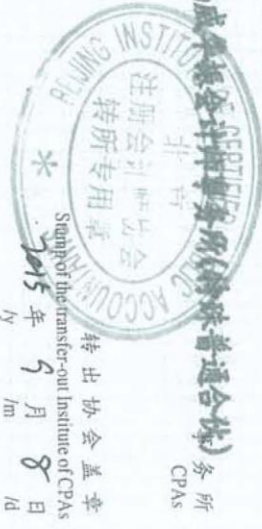 会计师事务所(特殊普通合伙)
务所
CPAs
BEIJING INSTITUTE OF CERTIFIED PUBLIC ACCOUNTANTS
北京
注册会计师协会
转所专用章
转出协会盖章
Stamp of the transfer-out Institute of CPAs
2015 年 9 月 8 日
/y /m /d